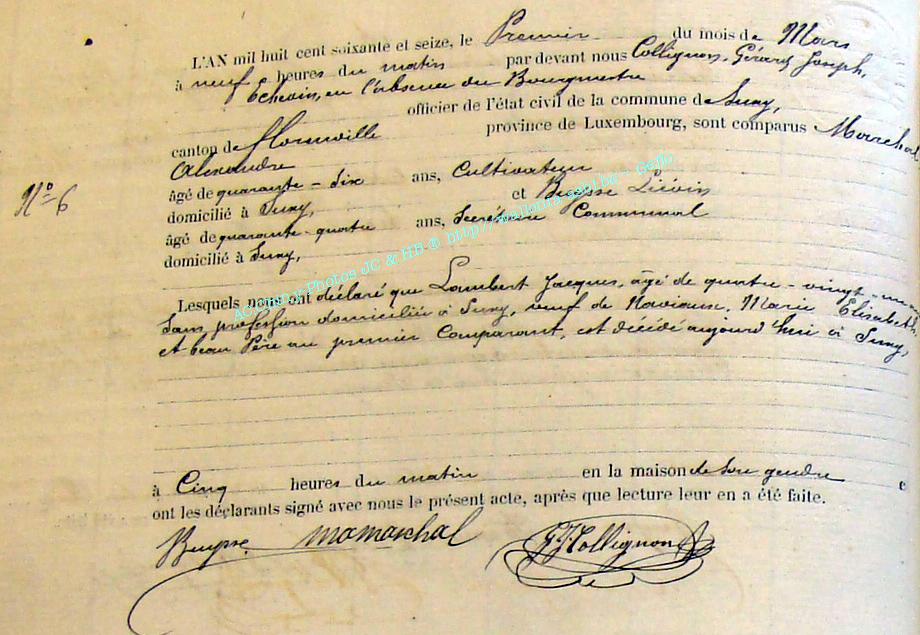 L'AN mil huit cent soixante et seize, le Premier du mois de Mars
à neuf heures du matin par devant nous Collignon, Gérard Joseph,
Echevin, en l'absence du Bourgmestre
officier de l'état civil de la commune de Suxy,
canton de Florenville province de Luxembourg, sont comparus Marechal
Alexandre
âgé de quarante - six ans, Cultivateur
N° 6
domicilié à Suxy, et Buysse Liévin
âgé de quarante-quatre ans, Secrétaire Communal
domicilié à Suxy,
Academy-Photos JC & HB ® http://wallonia-asbl.be - Geflo
Lesquels nous ont déclaré que Lambert Jacques, âgé de quatre - vingt - un
sans profession domicilié à Suxy, veuf de Marie Elisabeth,
et beau Père au premier Comparant, est décédé aujourd'hui à Suxy,
à Cinq heures du matin en la maison de son gendre e
ont les déclarants signé avec nous le présent acte, après que lecture leur en a été faite.
Buysse Marechal GJCollignon